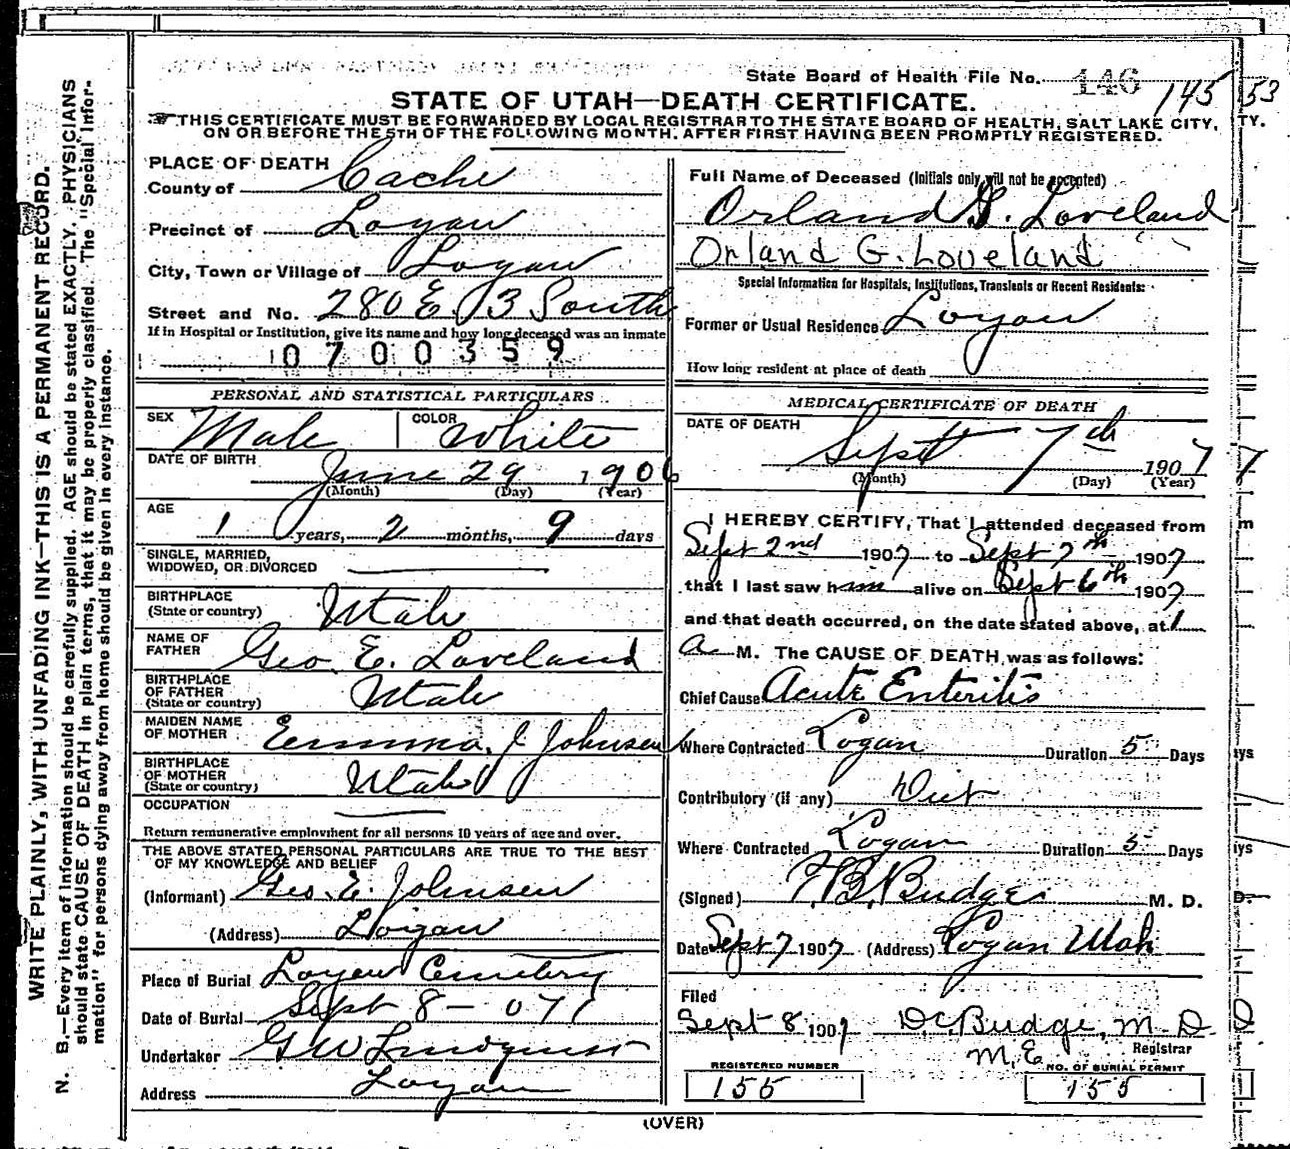 State Board of Health File No. 146 145 53
STATE OF UTAH—DEATH CERTIFICATE.
THIS CERTIFICATE MUST BE FORWARDED BY LOCAL REGISTRAR TO THE STATE BOARD OF HEALTH, SALT LAKE CITY, TY.
ON OR BEFORE THE 5TH OF THE FOLLOWING MONTH, AFTER FIRST HAVING BEEN PROMPTLY REGISTERED.
WRITE PLAINLY, WITH UNFADING INK—THIS IS A PERMANENT RECORD.
N. B.—Every item of information should be carefully supplied. AGE should be stated EXACTLY. PHYSICIANS
should state CAUSE OF DEATH in plain terms, that it may be properly classified. The "Special Infor-
mation" for persons dying away from home should be given in every instance.
PLACE OF DEATH
County of Cache
Precinct of Logan
City, Town or Village of Logan
Street and No. 280 E. 3 South
If in Hospital or Institution, give its name and how long deceased was an inmate
0700359
PERSONAL AND STATISTICAL PARTICULARS
SEX Male COLOR White
DATE OF BIRTH June 29 1906
(Month) (Day) (Year)
AGE
1 years, 2 months, 9 days
SINGLE, MARRIED,
WIDOWED, OR DIVORCED
BIRTHPLACE
(State or country) Utah
NAME OF
FATHER Geo. E. Loveland
BIRTHPLACE
OF FATHER
(State or country) Utah
MAIDEN NAME
OF MOTHER Emma J Johnsen
BIRTHPLACE
OF MOTHER
(State or country) Utah
OCCUPATION
Return remunerative employment for all persons 10 years of age and over.
THE ABOVE STATED PERSONAL PARTICULARS ARE TRUE TO THE BEST
OF MY KNOWLEDGE AND BELIEF
(Informant) Geo. E. Johnsen
(Address) Logan
Place of Burial Logan Cemetery
Date of Burial Sept 8 - 07
Undertaker G W Lindquist
Address Logan
Full Name of Deceased (Initials only will not be accepted)
Orland G. Loveland
Orland G. Loveland
Special Information for Hospitals, Institutions, Transients or Recent Residents:
Former or Usual Residence Logan
How long resident at place of death
MEDICAL CERTIFICATE OF DEATH
DATE OF DEATH
Sept 7th 1907 7
(Month) (Day) (Year)
I HEREBY CERTIFY, That I attended deceased from m
Sept 2nd 1907 to Sept 7th 1907
that I last saw him alive on Sept 6th 1907
and that death occurred, on the date stated above, at 1
A M. The CAUSE OF DEATH was as follows:
Chief Cause Acute Enteritis
Where Contracted Logan Duration 5 Days ys
Contributory (if any) Diet
Where Contracted Logan Duration 5 Days ys
(Signed) T.B. Budge M. D. D.
Date Sept 7 1907 (Address) Logan Utah
Filed
Sept 8 1907 D.C. Budge, M. D. D
M, E Registrar
REGISTERED NUMBER NO. OF BURIAL PERMIT
155 155
(OVER)